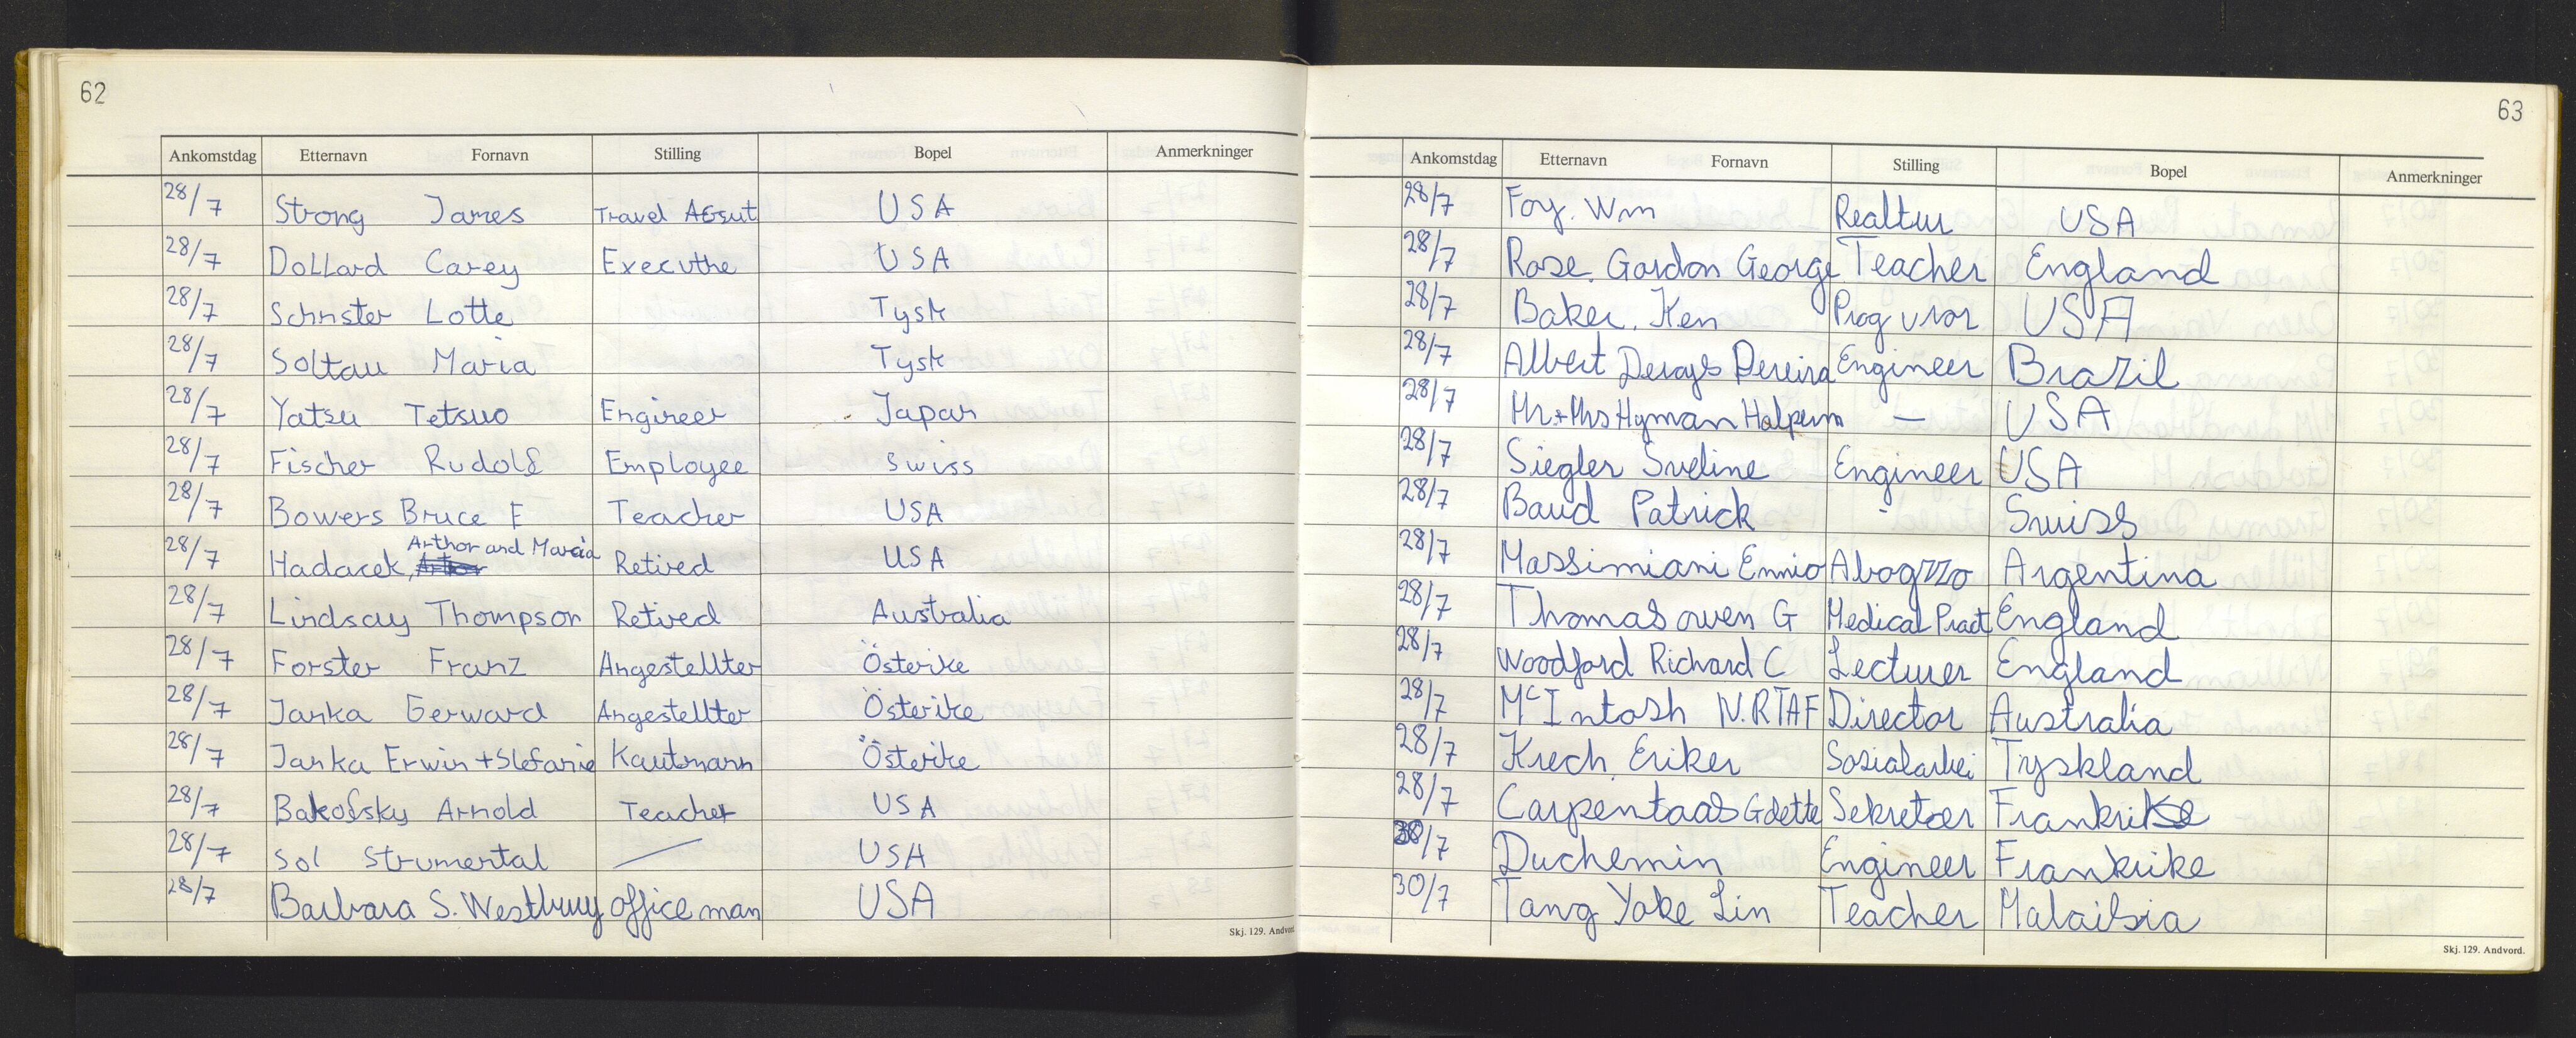 62
Ankomstdag Etternavn Fornavn Stilling Bopel Anmerkninger
28/7 Strong James Travel Agent USA
28/7 Dollard Carey Executhe USA
28/7 Schrister Lotte Tysk
28/7 Soltau Maria Tysk
28/7 Yatsu Tetsuo Engineer Japan
28/7 Fischer Rudolf Employee Swiss
28/7 Bowers Bruce E Teacher USA
Arthor and Marcia
28/7 Hadacek, Retired USA
28/7 Lindsay Thompson Retired Australia
28/7 Forster Franz Angestellter Österike
28/7 Janka Gerward Angestellter Österike
28/7 Janka Erwin + Stefanie Kaufmann Österike
28/7 Bakofsky Arnold Teacher USA
28/7 Sol Strumental USA
28/7 Barbara S. Westbury office man USA
Skj. 129. Andvord.
63
Ankomstdag Etternavn Fornavn Stilling Bopel Anmerkninger
28/7 Foy. Wm Realtur USA
28/7 Rose Gordon George Teacher England
28/7 Baker. Ken USA
28/7 Albert Pereira Engineer Brazil
28/7 Mr + Mrs Hyman Halpern — USA
28/7 Siegler Sveline Engineer USA
28/7 Baud Patrick - Swiss
28/7 Massimiani Ennio Abogzzo Argentina
28/7 Thomas owen G Medical Pract England
28/7 Woodford Richard C Lecturer England
28/7 McIntosh N.RTAF Director Australia
28/7 Krech. Eriker Sosialarbei Tyskland
28/7 Carpentaas Gdette Sekretær Frankrike
30/7 Duchemin Engineer Frankrike
30/7 Tang Yoke Lin Teacher Malaisia
Skj. 129. Andvord.